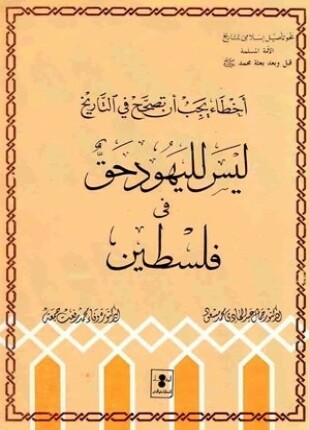 نحو تأصيل إسلامى لتاريخ
الأمة المسلمة
قبل وبعد بعثة محمد ﷺ
أخطاء يجب أن تصحح في التاريخ
ليس لليهود حق
فى
فلسطين
الدكتور جمال عبد الهادى محمد مسعود
الدكتورة وفاء محمد رفعت جمعة